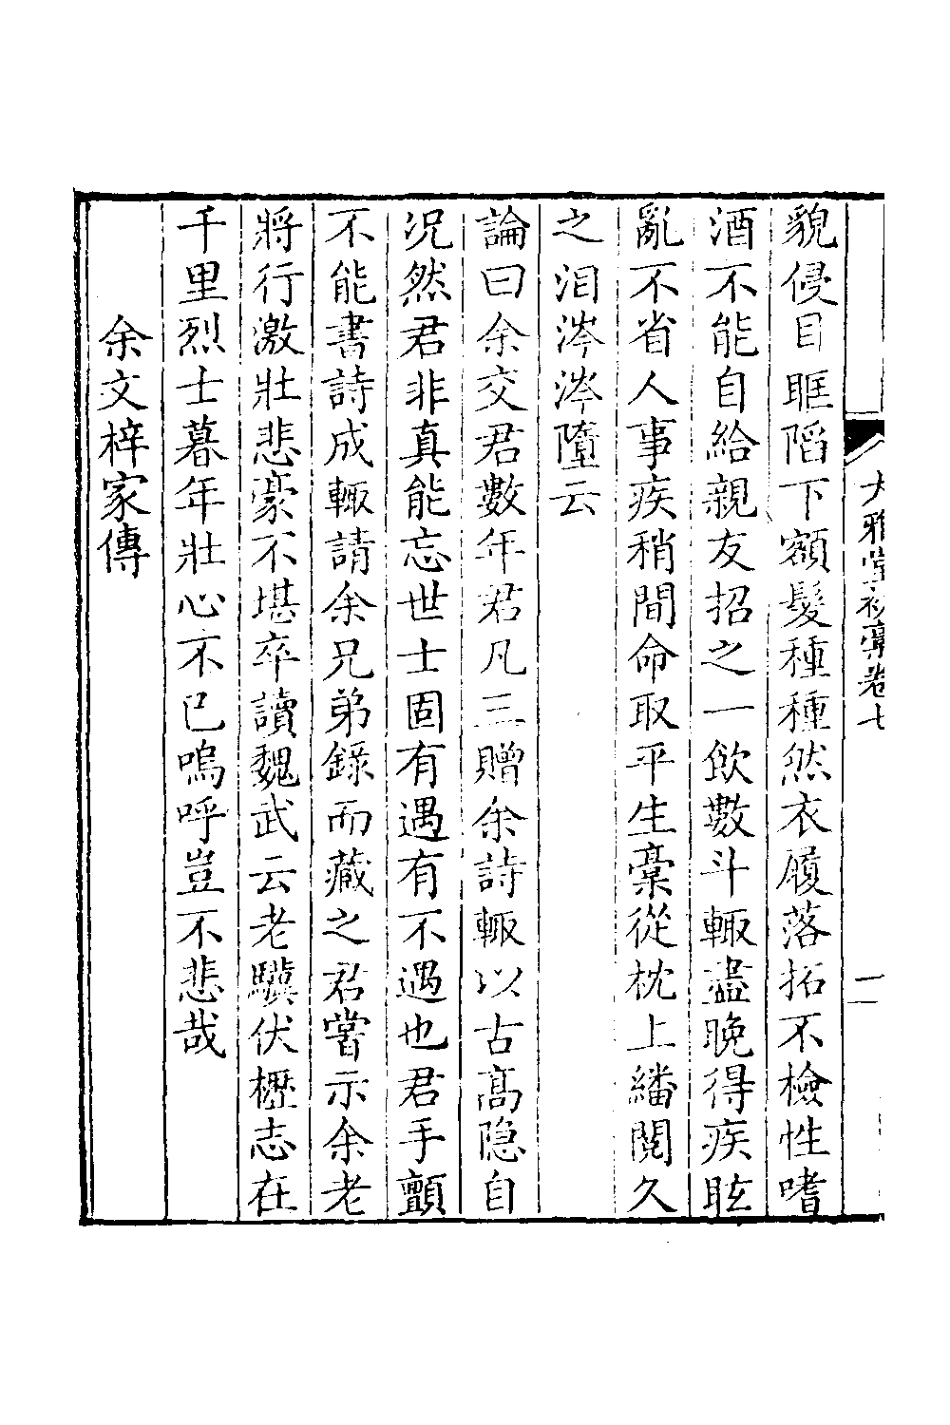 大雅堂初稾卷七
一
貌侵目眶䧟下額髮種種然衣履落拓不檢性嗜
酒不能自給親友招之一飲數斗輒盡晚得疾眩
亂不省人事疾稍間命取平生稾從枕上繙閱久
之泪涔涔墮云
論曰余交君數年君凡三贈余詩輒以古高隐自
况然君非真能忘世士固有遇有不遇也君手顫
不能書詩成輒請余兄弟錄而藏之君嘗示余老
將行激壯悲豪不堪卒讀魏武云老驥伏櫪志在
千里烈士暮年壯心不已嗚呼豈不悲哉
余文梓家傳